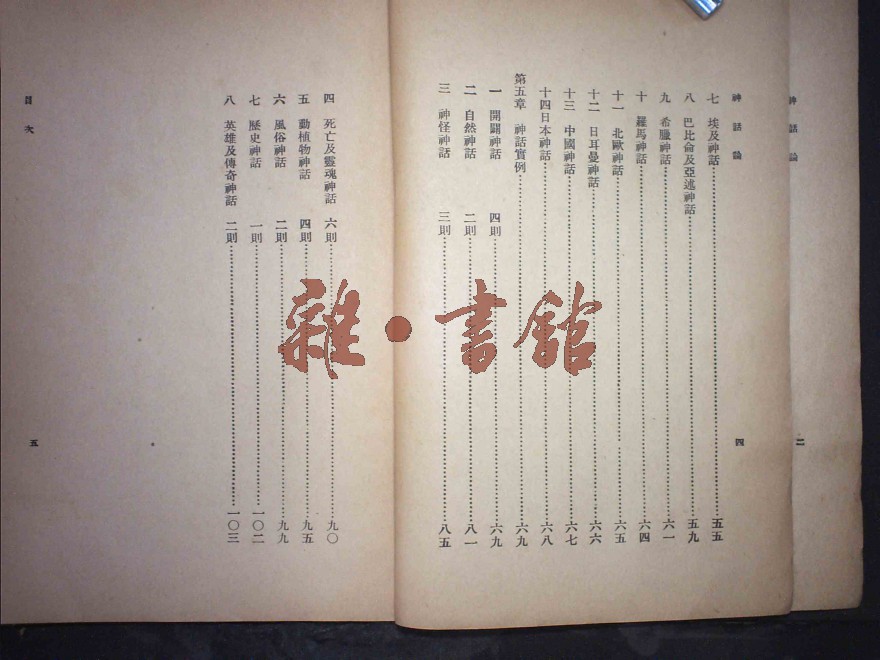 神話論
二
神話論
七 埃及神話 五五
八 巴比倫及亞述神話 五九
九 希臘神話 六一
十 羅馬神話 六四
十一 北歐神話 六五
十二 日耳曼神話 六六
十三 中國神話 六七
十四日本神話 六八
第五章 神話實例 六九
一 開闢神話 四則 六九
二 自然神話 二則 八一
三 神怪神話 三則 八五
四
四 死亡及靈魂神話 六則 九〇
五 動植物神話 四則 九五
六 風俗神話 二則 九九
七 歷史神話 一則 一〇二
八 英雄及傳奇神話 二則 一〇三
目次
五
雜·書館